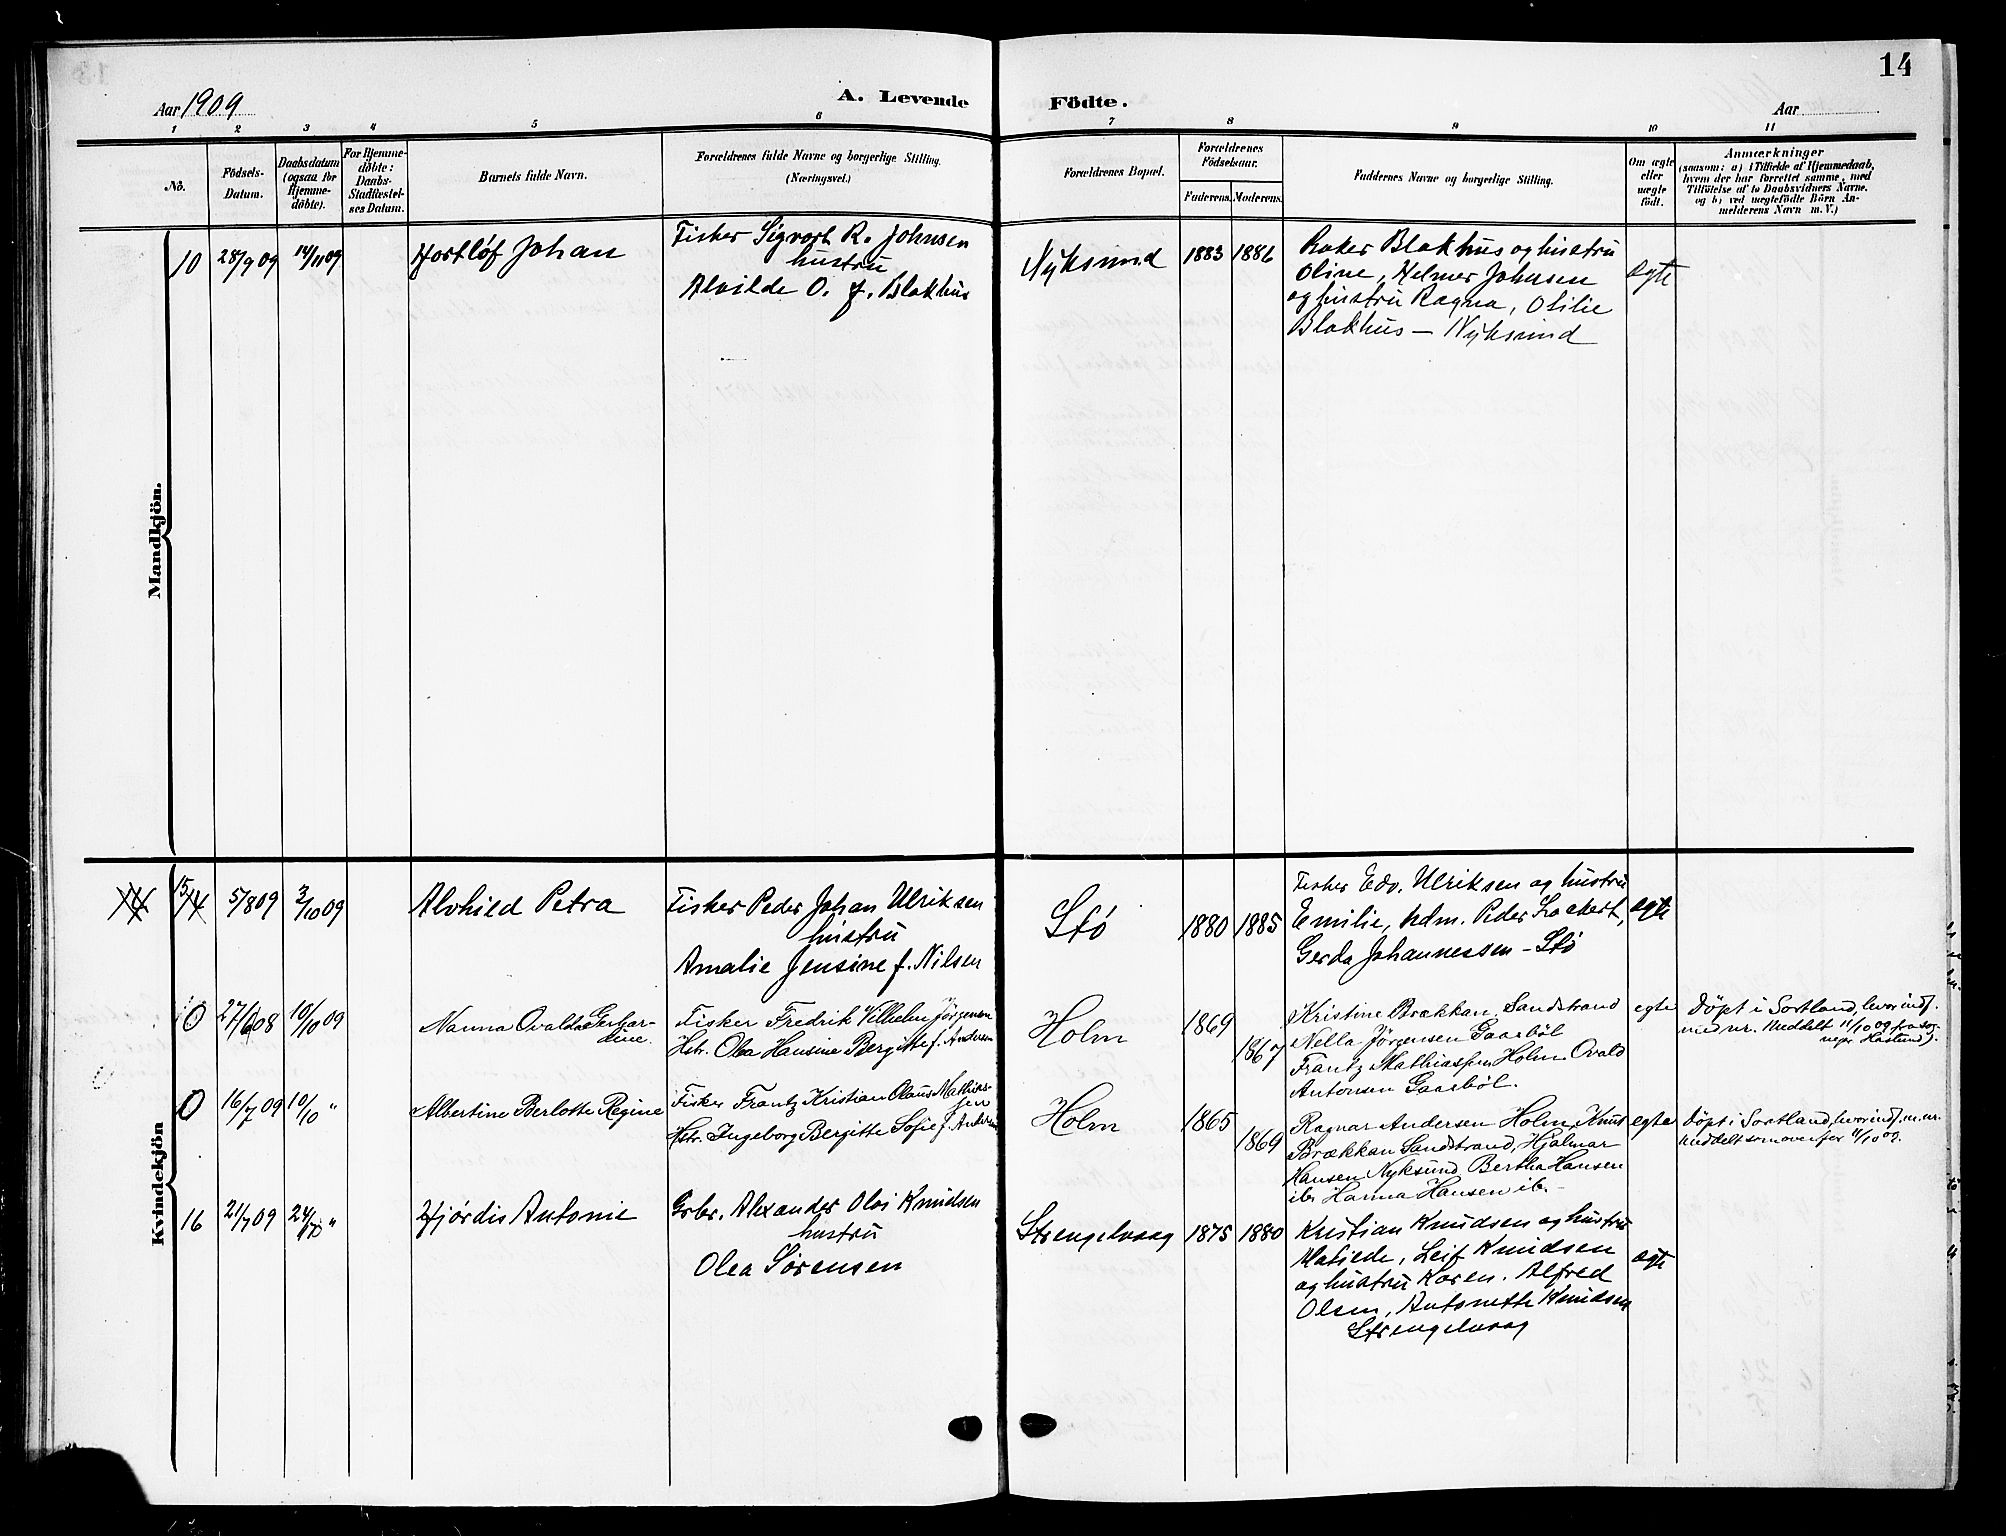 14
Aar 1909
A. Levende Födte.
Aar
1 2 3 4 5 6 7 8 9 10 11
No.
Födsels-Datum.
Daabsdatum (ogsaa for Hjemme-döbte).
For Hjemme-döbte: Daabs-Stadfæstel-ses Datum.
Barnets fulde Navn.
Forældrenes fulde Navne og borgerlige Stilling.
(Næringsvei.)
Forældrenes Bopæl.
Forældrenes Födselsaar.
Faderens. Moderens.
Faddernes Navne og borgerlige Stilling.
Om ægte eller uægte födt.
Anmærkninger
(saasom: a) i Tilfælde af Hjemmedaab,
hvem der har forrettet samme, med
Tilföielse af to Daabsvidners Navne,
og b) ved uægtefödte Börn An-
melderens Navn m. V.)
Mandkjön.
10 28/9 09 14/11 09 Hartløf Johan
Fisker Sigvart R. Johnsen
hustru
Alvilde O. f. Blokhus
Nyksund 1883 1886
Blokhus og hustru
Oline, Helmer Johnsen
og hustru Ragna, Otilie
Blokhus — Nyksund
egte
Kvindekjön
14 15 14 5/8 09 3/10 09 Alvhild Petra
Fisker Peder Johan Ulriksen
hustru
Amalie Jensine f. Nilsen
Stø 1880 1885
Fisker Edv. Ulriksen og hustru
Emilie, hdm. Peder Lockert,
Gerda Johannessen – Stø
egte
0 27/6 08 10/10 09 Nanna Ovalda Gerhar-
dine.
Fisker Fredrik Vilhelm Jörgensen
Hstr. Olea Hansine Bergitte f. Andersen
Holm 1869 1867
Kristine Brækkan, Sandstrand
Nella Jörgensen Gaasböl
Frantz Mathiassen, Holm Ovald
Antonsen Gaasböl.
egte
Döpt i Sortland, hvor indf.
med nr. Meddelt 11/10 09 fra sog-
nepr.
0 16/7 09 10/10 " Albertine Berlotte Regine
Fisker Frantz Kristian Olaus Mathias-
sen
Hstr. Ingeborg Bergitte Sofie f. Andersen
Holm 1865 1869
Ragnar Andersen Holm, Knut
Brækkan Sandstrand, Hjalmar
Hansen Nyksund Bertha Hansen
ib. Hanna Hansen ib.
egte
Döpt i Sortland, hvor indf. m. nr.
Meddelt som ovenfor 11/10 09.
16 21/7 09 24/10 " Hjördis Antonie
Grbr. Alexander Olai Knudsen
hustru
Olea Sörensen
Strengelvaag 1875 1880
Kristian Knudsen og hustru
Matilde, Leif Knudsen
og hustru Karen. Alfred
Olsen, Antonette Knudsen
Strengelvaag
egte